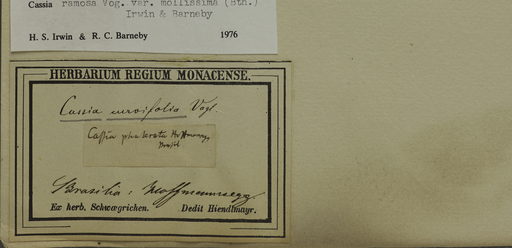 Cassia ramosa Vog. var. mollissima (Bth.)
Irwin & Barneby
H. S. Irwin & R. C. Barneby 1976
HERBARIUM REGIUM MONACENSE.
Cassia curvifolia Vogl.
Cassia Hoffmannsegg
Brasil
Brasilia: Hoffmannsegg.
Ex herb. Schwægrichen. Dedit Hiendlmayr.